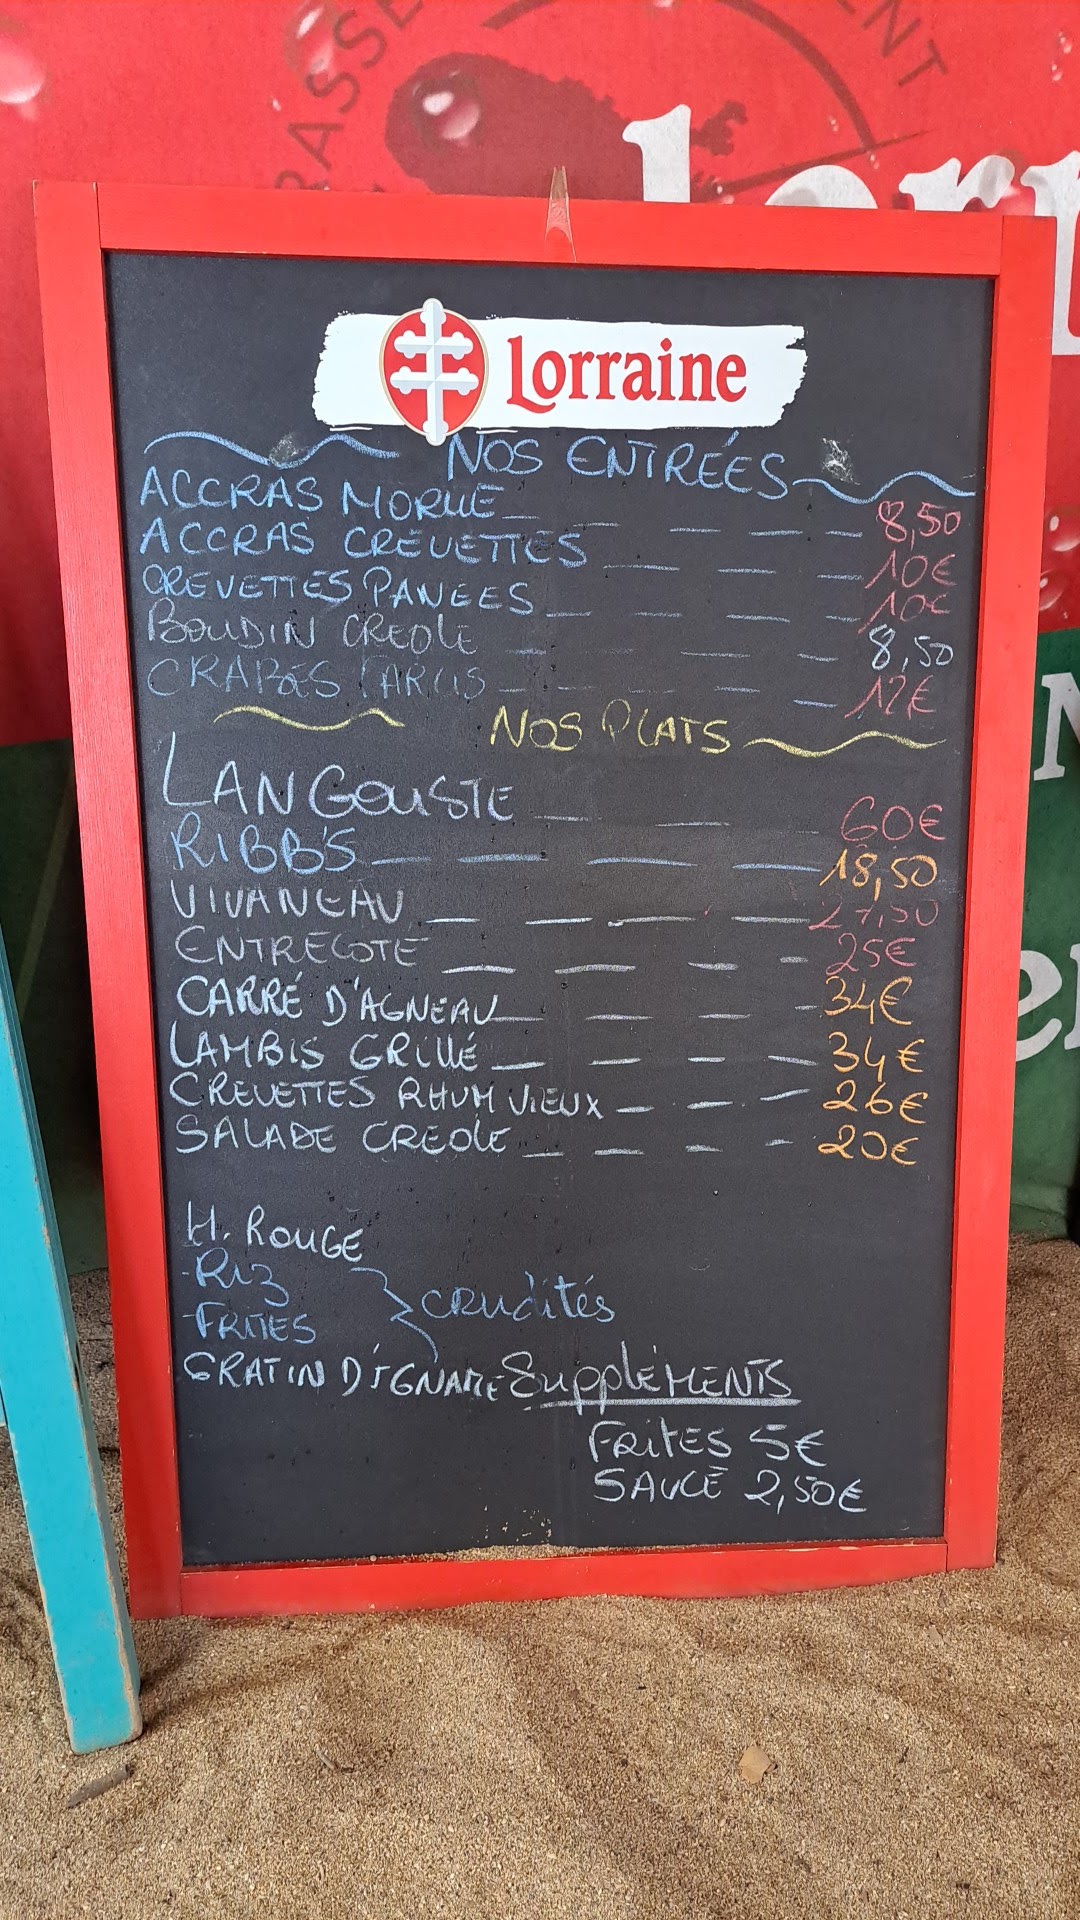 Lorraine
NOS ENTRÉES
ACCRAS MORUE 8,50
ACCRAS CREVETTES 10€
CREVETTES PANEES 10€
BOUDIN CREOLE 8,50
CRABES FARCIS 12€
NOS PLATS
LANGOUSTE 60€
RIBB'S 18,50
VIVANEAU
ENTRECOTE 25€
CARRÉ D'AGNEAU 34€
LAMBIS GRILLÉ 34€
CREVETTES RHUM VIEUX 26€
SALADE CREOLE 20€
H. ROUGE
- RIZ
- FRITES
crudités
GRATIN D'IGNAME
SuppléMENTS
FRITES 5€
SAUCE 2,50€